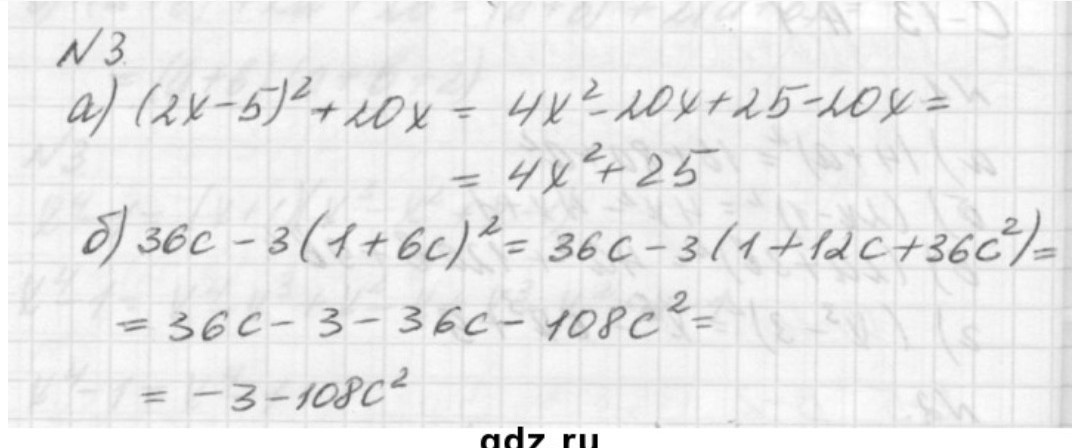 №3.
а) (2x-5)² + 20x = 4x² - 20x + 25 - 20x =
= 4x² + 25
б) 36c - 3(1 + 6c)² = 36c - 3(1 + 12c + 36c²) =
= 36c - 3 - 36c - 108c² =
= -3 - 108c²
gdz.ru